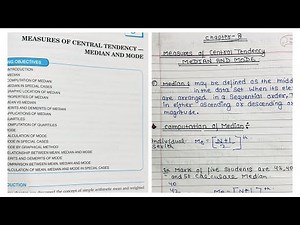 MEASURES OF CENTRAL TENDENCY —
MEDIAN AND MODE
OBJECTIVES
INTRODUCTION
MEDIAN
COMPUTATION OF MEDIAN
MEDIAN IN SPECIAL CASES
GRAPHIC LOCATION OF MEDIAN
PROPERTIES OF MEDIAN
MEAN VS MEDIAN
MERITS AND DEMERITS OF MEDIAN
APPLICATIONS OF MEDIAN
QUARTILES
COMPUTATION OF QUARTILES
MODE
CALCULATION OF MODE
MODE IN SPECIAL CASES
MODE BY GRAPHICAL METHOD
RELATIONSHIP BETWEEN MEAN, MEDIAN AND MODE
MERITS AND DEMERITS OF MODE
COMPARISON BETWEEN MEAN, MEDIAN AND MODE
CALCULATION OF MEAN, MEDIAN AND MODE IN SPECIAL CASES
INTRODUCTION
discussed the concept of simple arithmetic mean and weighted
Chapter-8
Measures of Central Tendency
MEDIAN AND MODE
Median: may be defined as the midd
in the data set when its ele
are arranged in a sequential order, T
in either ascending or descending o
magnitude.
Computation of Median:
Individual Me = [N+1/2]th
Series
In Mark of five Students are 42, 40,
and 50 Calculate Median
40
42